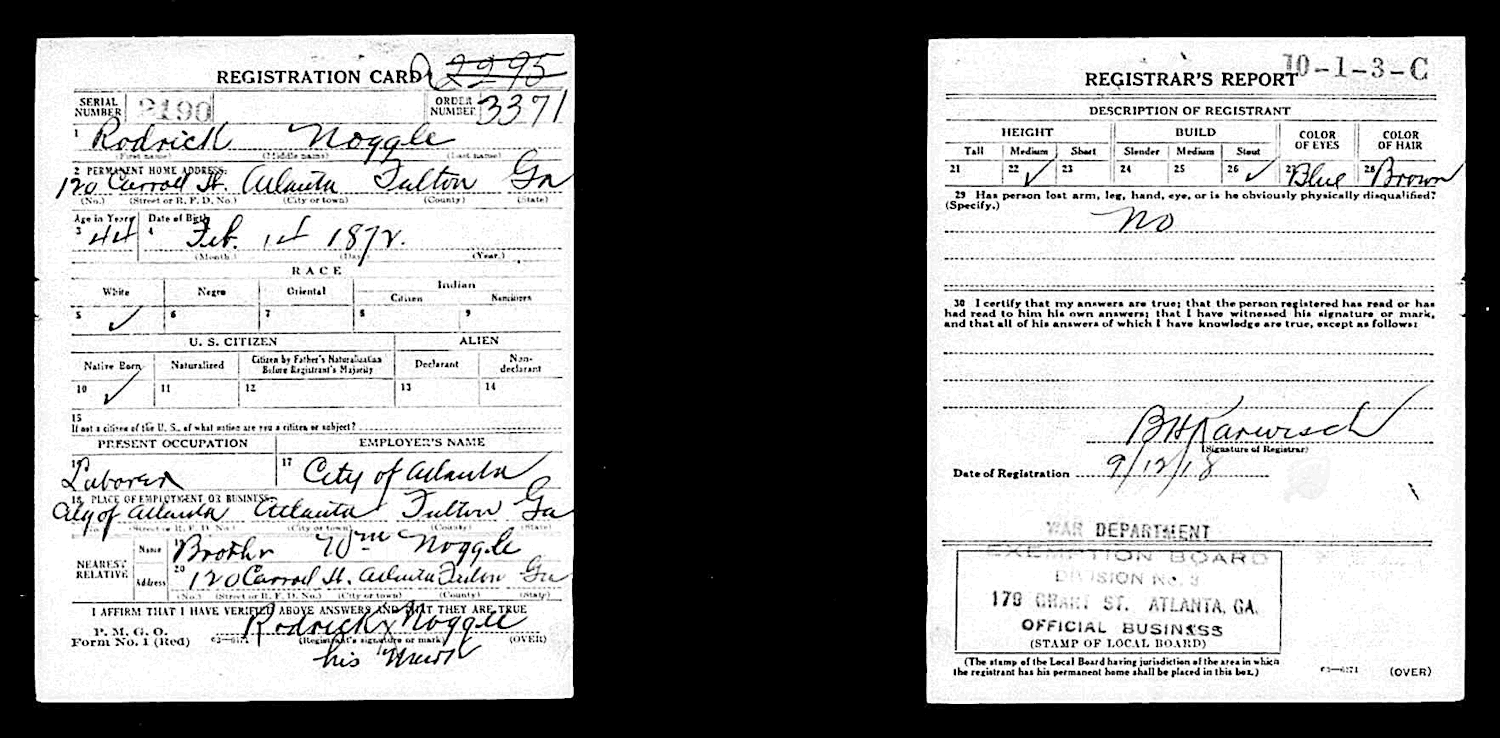 REGISTRATION CARD 2295
SERIAL NUMBER 2190 ORDER NUMBER 3371
1 Rodrick Noggle
(First name) (Middle name) (Last name)
2 PERMANENT HOME ADDRESS:
120 Carroll St. Atlanta Fulton Ga
(No.) (Street or R. F. D. No.) (City or town) (County) (State)
Age in Years Date of Birth
3 44 4 Feb. 14 1872.
(Month.) (Day.) (Year.)
RACE
White Negro Oriental Indian
Citizen Noncitizen
5 ✓ 6 7 8 9
U. S. CITIZEN ALIEN
Native Born Naturalized Citizen by Father's Naturalization Before Registrant's Majority Declarant Non-declarant
10 ✓ 11 12 13 14
15
If not a citizen of the U. S., of what nation are you a citizen or subject?
PRESENT OCCUPATION EMPLOYER'S NAME
16 Laborer 17 City of Atlanta
18 PLACE OF EMPLOYMENT OR BUSINESS:
City of Atlanta Atlanta Fulton Ga
(No.) (Street or R. F. D. No.) (City or town) (County) (State)
NEAREST RELATIVE Name 19 Brother Wm Noggle
Address 20 120 Carroll St. Atlanta Fulton Ga
(No.) (Street or R. F. D. No.) (City or town) (County) (State)
I AFFIRM THAT I HAVE VERIFIED ABOVE ANSWERS AND THAT THEY ARE TRUE
P. M. G. O.
Form No. 1 (Red) 03—6171 Rodrick x Noggle
(Registrant's signature or mark) (OVER)
his mark
REGISTRAR'S REPORT 10-1-3-C
DESCRIPTION OF REGISTRANT
HEIGHT BUILD COLOR OF EYES COLOR OF HAIR
Tall Medium Short Slender Medium Stout
21 22 ✓ 23 24 25 26 ✓ 27 Blue 28 Brown
29 Has person lost arm, leg, hand, eye, or is he obviously physically disqualified?
(Specify.)
No
30 I certify that my answers are true; that the person registered has read or has
had read to him his own answers; that I have witnessed his signature or mark,
and that all of his answers of which I have knowledge are true, except as follows:
B H Karwisch
(Signature of Registrar)
Date of Registration 9/12/18
WAR DEPARTMENT
EXEMPTION BOARD
DIVISION No. 3
179 GRANT ST. ATLANTA, GA.
OFFICIAL BUSINESS
(STAMP OF LOCAL BOARD)
(The stamp of the Local Board having jurisdiction of the area in which
the registrant has his permanent home shall be placed in this box.)
03—6171 (OVER)